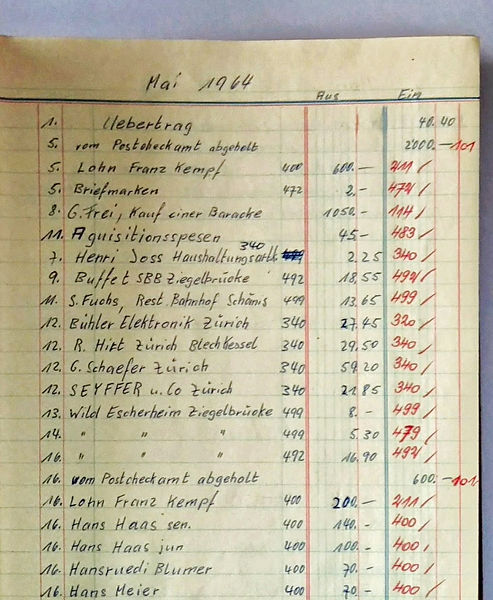 Mai 1964
Aus Ein
1. Uebertrag 40.40
5. vom Postcheckamt abgeholt 2000.— 101
5. Lohn Franz Kempf 400 600.— 211 /
5. Briefmarken 472 2.- 472 /
8. G. Frei, Kauf einer Baracke 1050.- 114 /
11. Aquisitionsspesen 45.- 483 /
340
7. Henri Joss Haushaltungsartk. 2.25 340 /
9. Buffet SBB Ziegelbrücke 492 18.55 492 /
11. S. Fuchs, Rest. Bahnhof Schänis 499 13.65 499 /
12. Bühler Elektronik Zürich 340 27.45 320 /
12. R. Hirt Zürich Blechkessel 340 29.50 340 /
12. G. Schaefer Zürich 340 59.20 340 /
12. SEYFFER u. Co Zürich 340 21.85 340 /
13. Wild Escherheim Ziegelbrücke 499 8.- 499 /
14. " " " 499 5.30 479 /
16. " " " 492 16.90 492 /
16. vom Postcheckamt abgeholt 600.- 101
16. Lohn Franz Kempf 400 200.- 211 /
16. Hans Haas sen. 400 140.- 400 /
16. Hans Haas jun 400 100.- 400 /
16. Hansruedi Blumer 400 70.- 400 /
16. Hans Meier 400 70.- 400 /